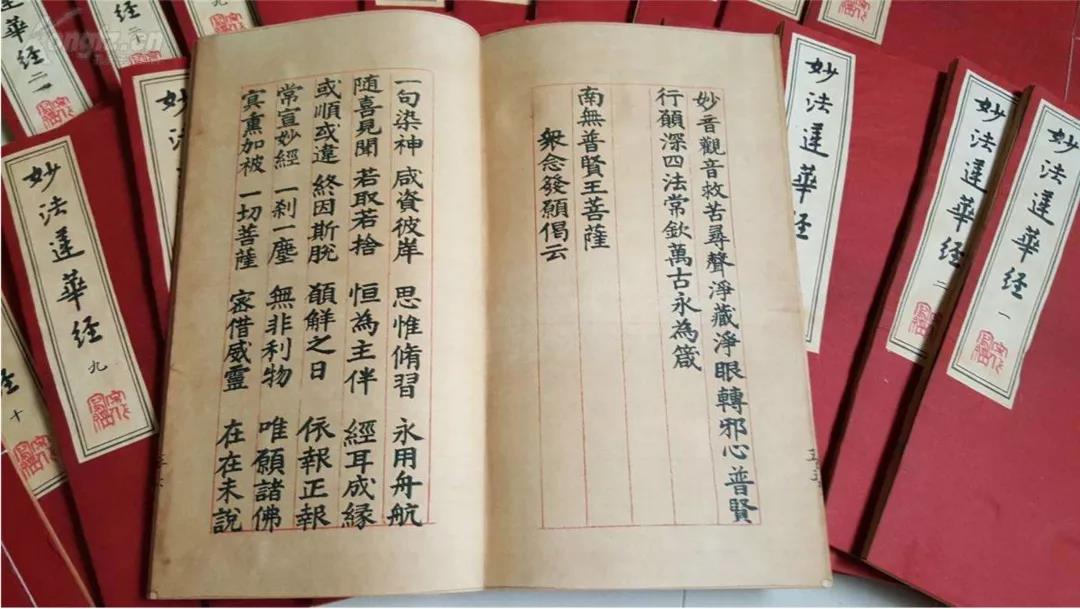 妙音觀音救苦尋聲淨藏淨眼轉邪心普賢
行願深四法常欽萬古永為箴
南無普賢王菩薩
衆念發願偈云
一句染神 咸資彼岸 思惟脩習 永用舟航
隨喜見聞 若取若捨 恒為主伴 經耳成縁
或順或違 終因斯脫 願解之日 依報正報
常宣妙經 一刹一塵 無非利物 唯願諸佛
冥熏加被 一切菩薩 密借威靈 在在未說
妙法蓮華经 一
妙法蓮華经 二
妙法蓮華经
妙法蓮華经 九
经 十